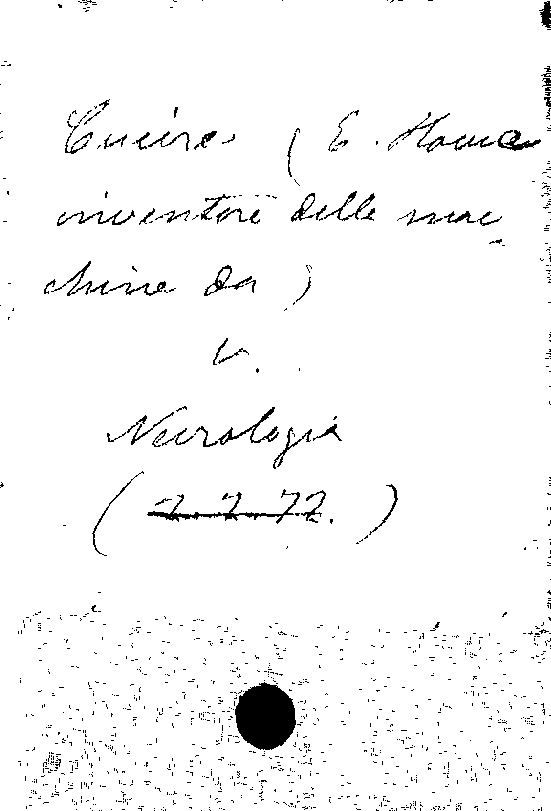 Cucire (E. Howe
inventore delle mac
chine da)
v.
Necrologia
(2.2.72.)